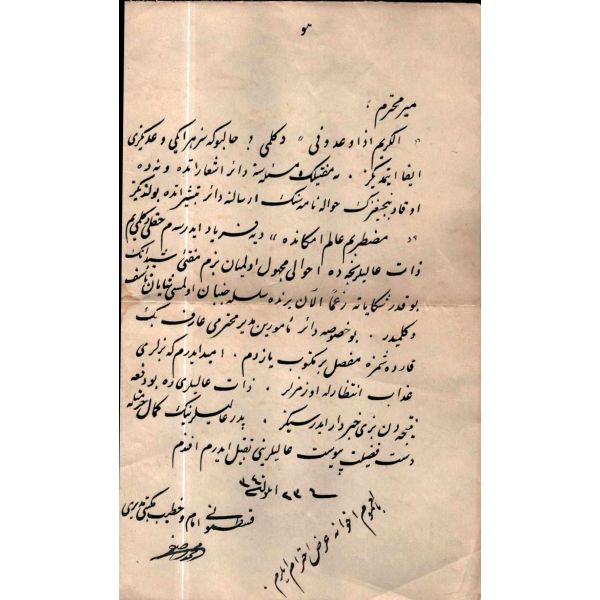 هو
میر محترم ؛
« الکریم اذا وعد وفی » دکلمی ؟ حالبوکه سز هر ایکی وعدیکزی
ایفا ایتمدیکز . نه مسئله‌سنه دائر اشعارانده و نه ده
اوقادینجغزک حواله نامه سنک ارسالنه دائر تبشیرانده بولندیکز
« مضطربم عالم امکانده » دیه فریاد ایدرسه‌م حقلی دکلمی‌یم
ذات عالیلرنجه ده احوالی مجهول اولمیان بزم مفتئ
بوقدر شکایاته رغماً الآن برنده سلسله جنبان اولمسی شایان تأسف
دکلمیدر . بو خصوصه دائر مأمورین مدیر محترمی عارف بک
قارده‌شمزه مفصل بر مکتوب یازدم . امید ایدرم که بزلری
عذاب انتظارله اوزمزلر . ذات عالیلری ده بو دفعه
نتیجه دن بزی خبردار ایدرسیکز . پدر عالیلرینک کمال
دست فضیلت پیوست عالیلرینی تقبیل ایدرم افندم
٢٣ ایلول ٣٤
قسطمونی امام و خطیب مکتبی مدیری
بالعموم اخوانه عرض احترام ایدرم .